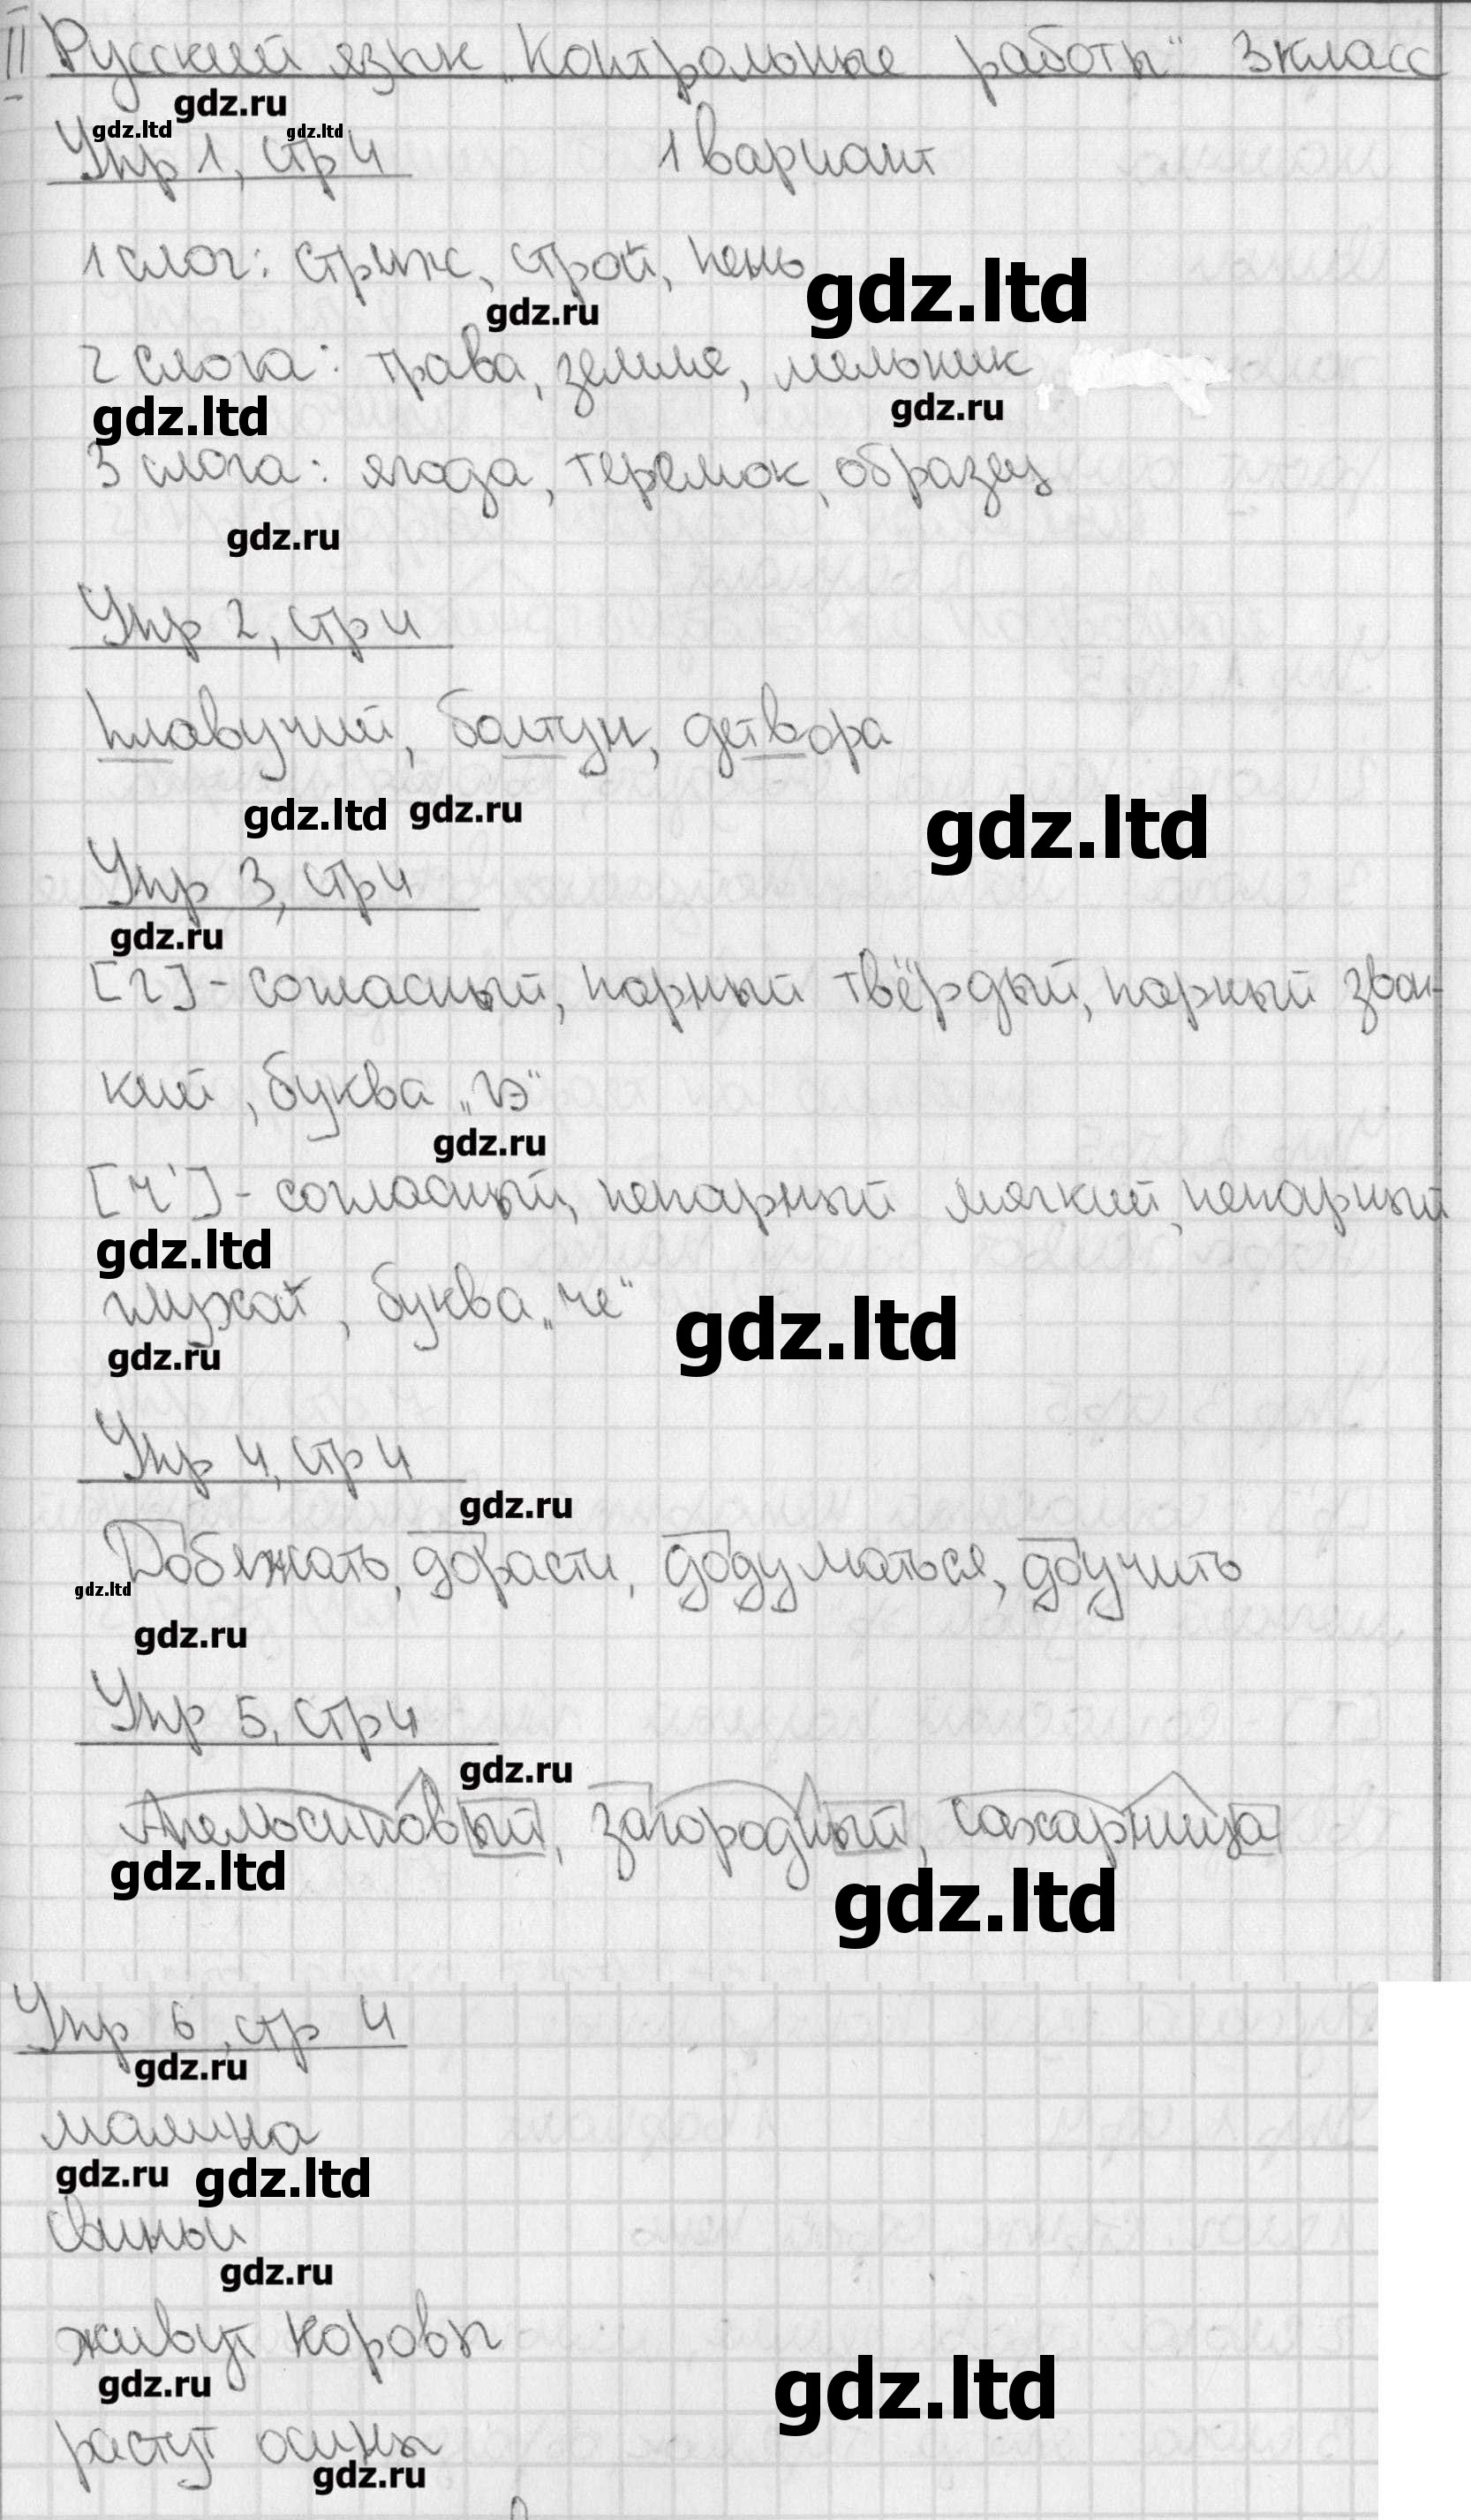 II Русский язык „Контрольные работы" 3 класс
gdz.ru
gdz.ltd gdz.ltd
Упр 1, стр 4 1 вариант
1 слог: стриж, строй, пень
gdz.ltd
gdz.ru
2 слога: трава, земле, мельник
gdz.ltd gdz.ru
3 слога: ягода, теремок, образец
gdz.ru
Упр 2, стр 4
Плавучий, болтун, детвора
gdz.ltd gdz.ru gdz.ltd
Упр 3, стр 4
gdz.ru
[г] - согласный, парный твёрдый, парный звон-
кий, буква „гэ"
gdz.ru
[ч'] - согласный, непарный мягкий, непарный
gdz.ltd
глухой, буква „че"
gdz.ltd
gdz.ru
Упр 4, стр 4
gdz.ru
Добежать, дорасти, додуматься, доучить
gdz.ltd
gdz.ru
Упр 5, стр 4
gdz.ru
Апельсиновый, загородный, сахарница
gdz.ltd gdz.ltd
Упр 6, стр 4
gdz.ru
малина
gdz.ru gdz.ltd
свиньи
gdz.ru
живут коровы
gdz.ru gdz.ltd
растут осины
gdz.ru